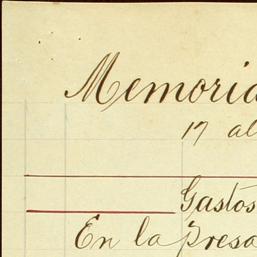 Memoria
17 al
Gastos
En la presa